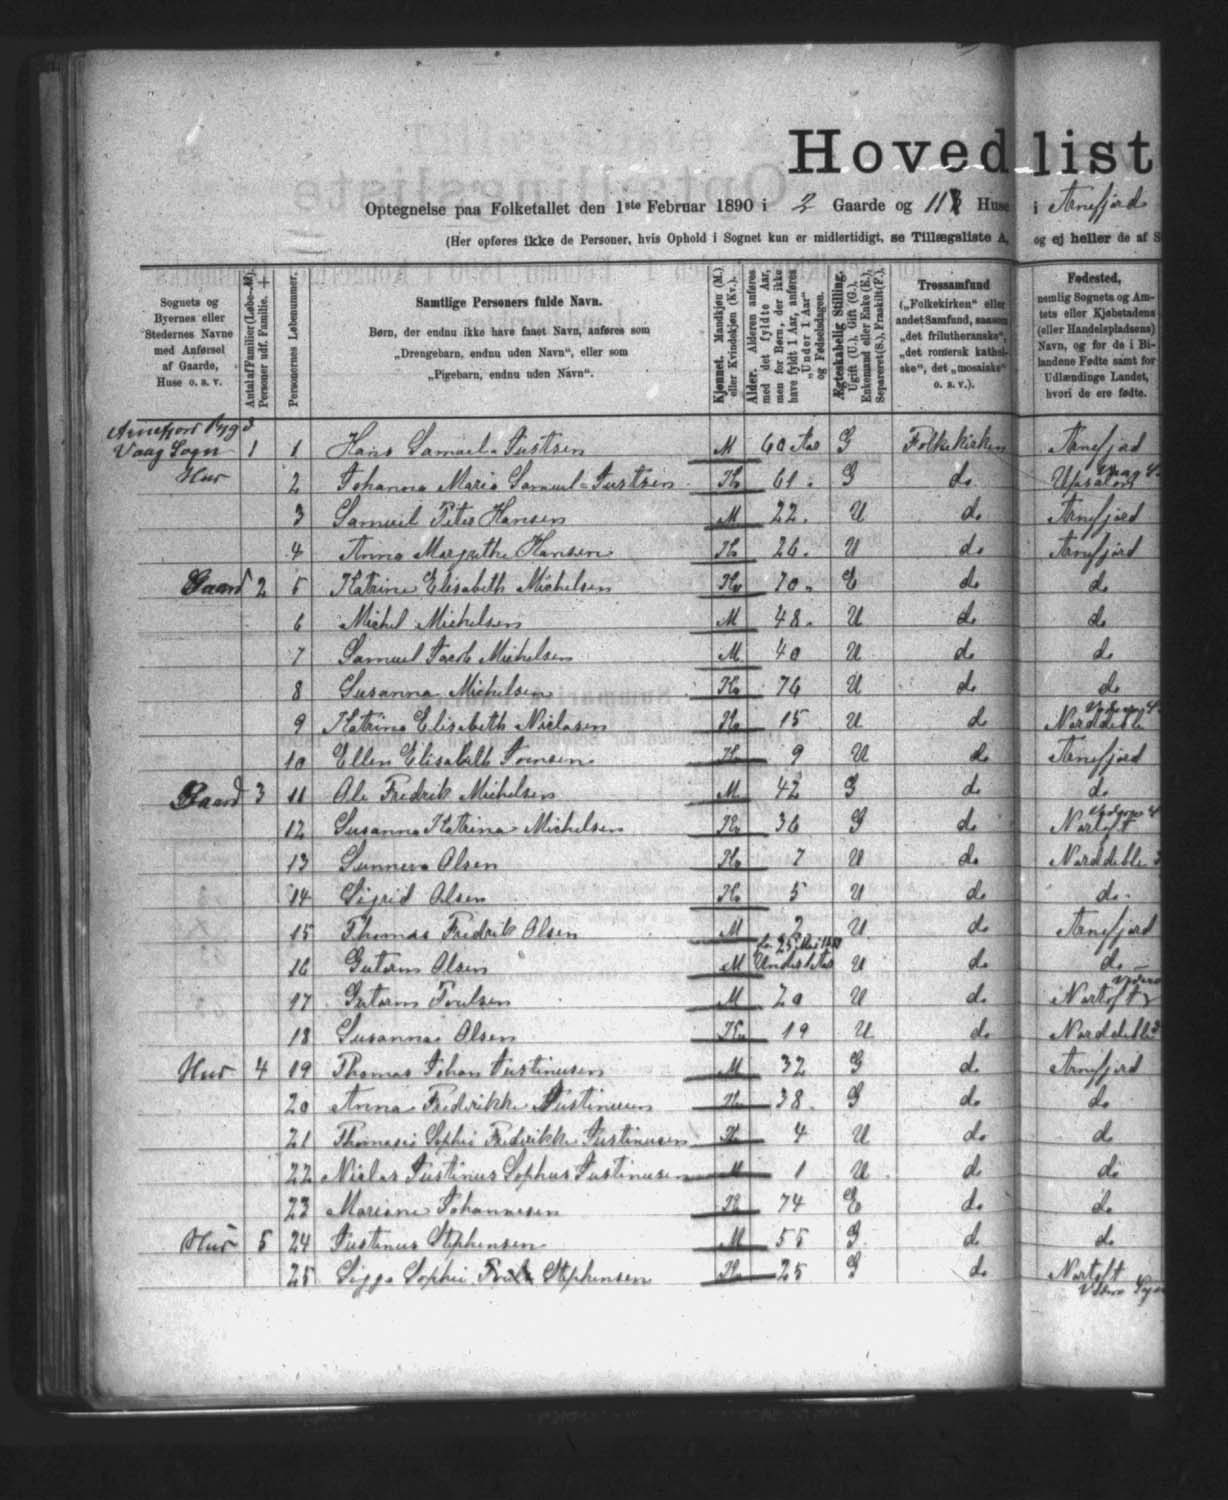 Hovedlist
Optegnelse paa Folketallet den 1ste Februar 1890 i 2 Gaarde og 11 Huse i Arnefjord
(Her opføres ikke de Personer, hvis Ophold i Sognet kun er midlertidigt, se Tillægsliste A, og ej heller de af S
Sognets og Byernes eller Stedernes Navne med Anførsel af Gaarde, Huse o. s. v.
Antal af Familier (Løbe-№). Personer udf. Familie. +
Personernes Løbenummer.
Samtlige Personers fulde Navn.
Børn, der endnu ikke have faaet Navn, anføres som
„Drengebarn, endnu uden Navn“, eller som
„Pigebarn, endnu uden Navn“.
Kjønnet. Mandkjøn (M.) eller Kvindekjøn (Kv.).
Alder. Alderen anføres med det fyldte Aar, men for Børn, der ikke have fyldt 1 Aar, anføres „Under 1 Aar“ og Fødselsdagen.
Ægteskabelig Stilling. Ugift (U.), Gift (G.), Enkemand eller Enke (E.), Separeret (S.), Fraskilt (F.).
Trossamfund („Folkekirken“ eller andet Samfund, saasom „det frilutheranske“, „det romersk katholske“, det „mosaiske“ o. s. v.).
Fødested, nemlig Sognets og Amtets eller Kjøbstadens (eller Handelspladsens) Navn, og for de i Bilandene Fødte samt for Udlændinge Landet, hvori de ere fødte.
Arnefjord Bygd
Vaag Sogn 1 1 Hans Samuel Justsen M 60 Aar G Folkekirken Arnefjord
Hus 2 Johanna Maria Samuel Justsen Kv 61 G do Vaag S
3 Samuel Peter Hansen M 22 U do Arnefjord
4 Anna Margrethe Hansen Kv 26 U do Arnefjord
Gaard 2 5 Katrine Elisabeth Michelsen Kv 70 E do do
6 Michel Michelsen M 48 U do do
7 Samuel Jacob Michelsen M 40 U do do
8 Susanna Michelsen Kv 76 U do do
9 Katrina Elisabeth Niclasen Kv 15 U do Norddeble
10 Ellen Elisabeth Joensen Kv 9 U do Arnefjord
Gaard 3 11 Ole Fredrik Michelsen M 42 G do do
12 Susanna Katrina Michelsen Kv 36 G do Nortoft
13 Sunneva Olsen Kv 7 U do Norddeble
14 Sigrid Olsen Kv 5 U do do
15 Thomas Fredrik Olsen M 2 U do Arnefjord
16 Gutorm Olsen M Under 1 Aar U do do
17 Gutorm Poulsen M 20 U do Nortoft
18 Susanna Olsen Kv 19 U do Norddeble
Hus 4 19 Thomas Johan Justinusen M 32 G do Arnefjord
20 Anna Fredrikke Justinusen Kv 38 G do do
21 Thomasie Sophie Fredrikke Justinusen Kv 4 U do do
22 Niclas Justinus Sophus Justinusen M 1 U do do
23 Mariane Johannesen Kv 74 E do do
Hus 5 24 Justinus Stephensen M 55 G do do
25 Sigga Sophie Stephensen Kv 25 G do Nortoft